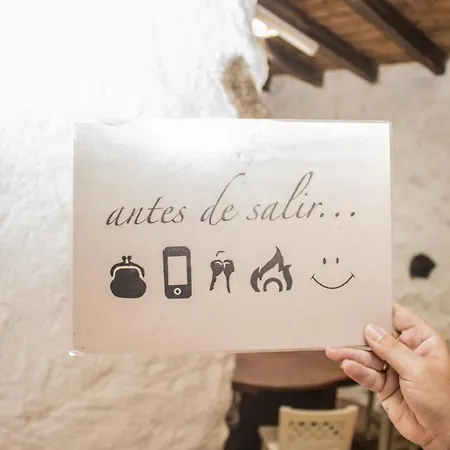 antes de salir...